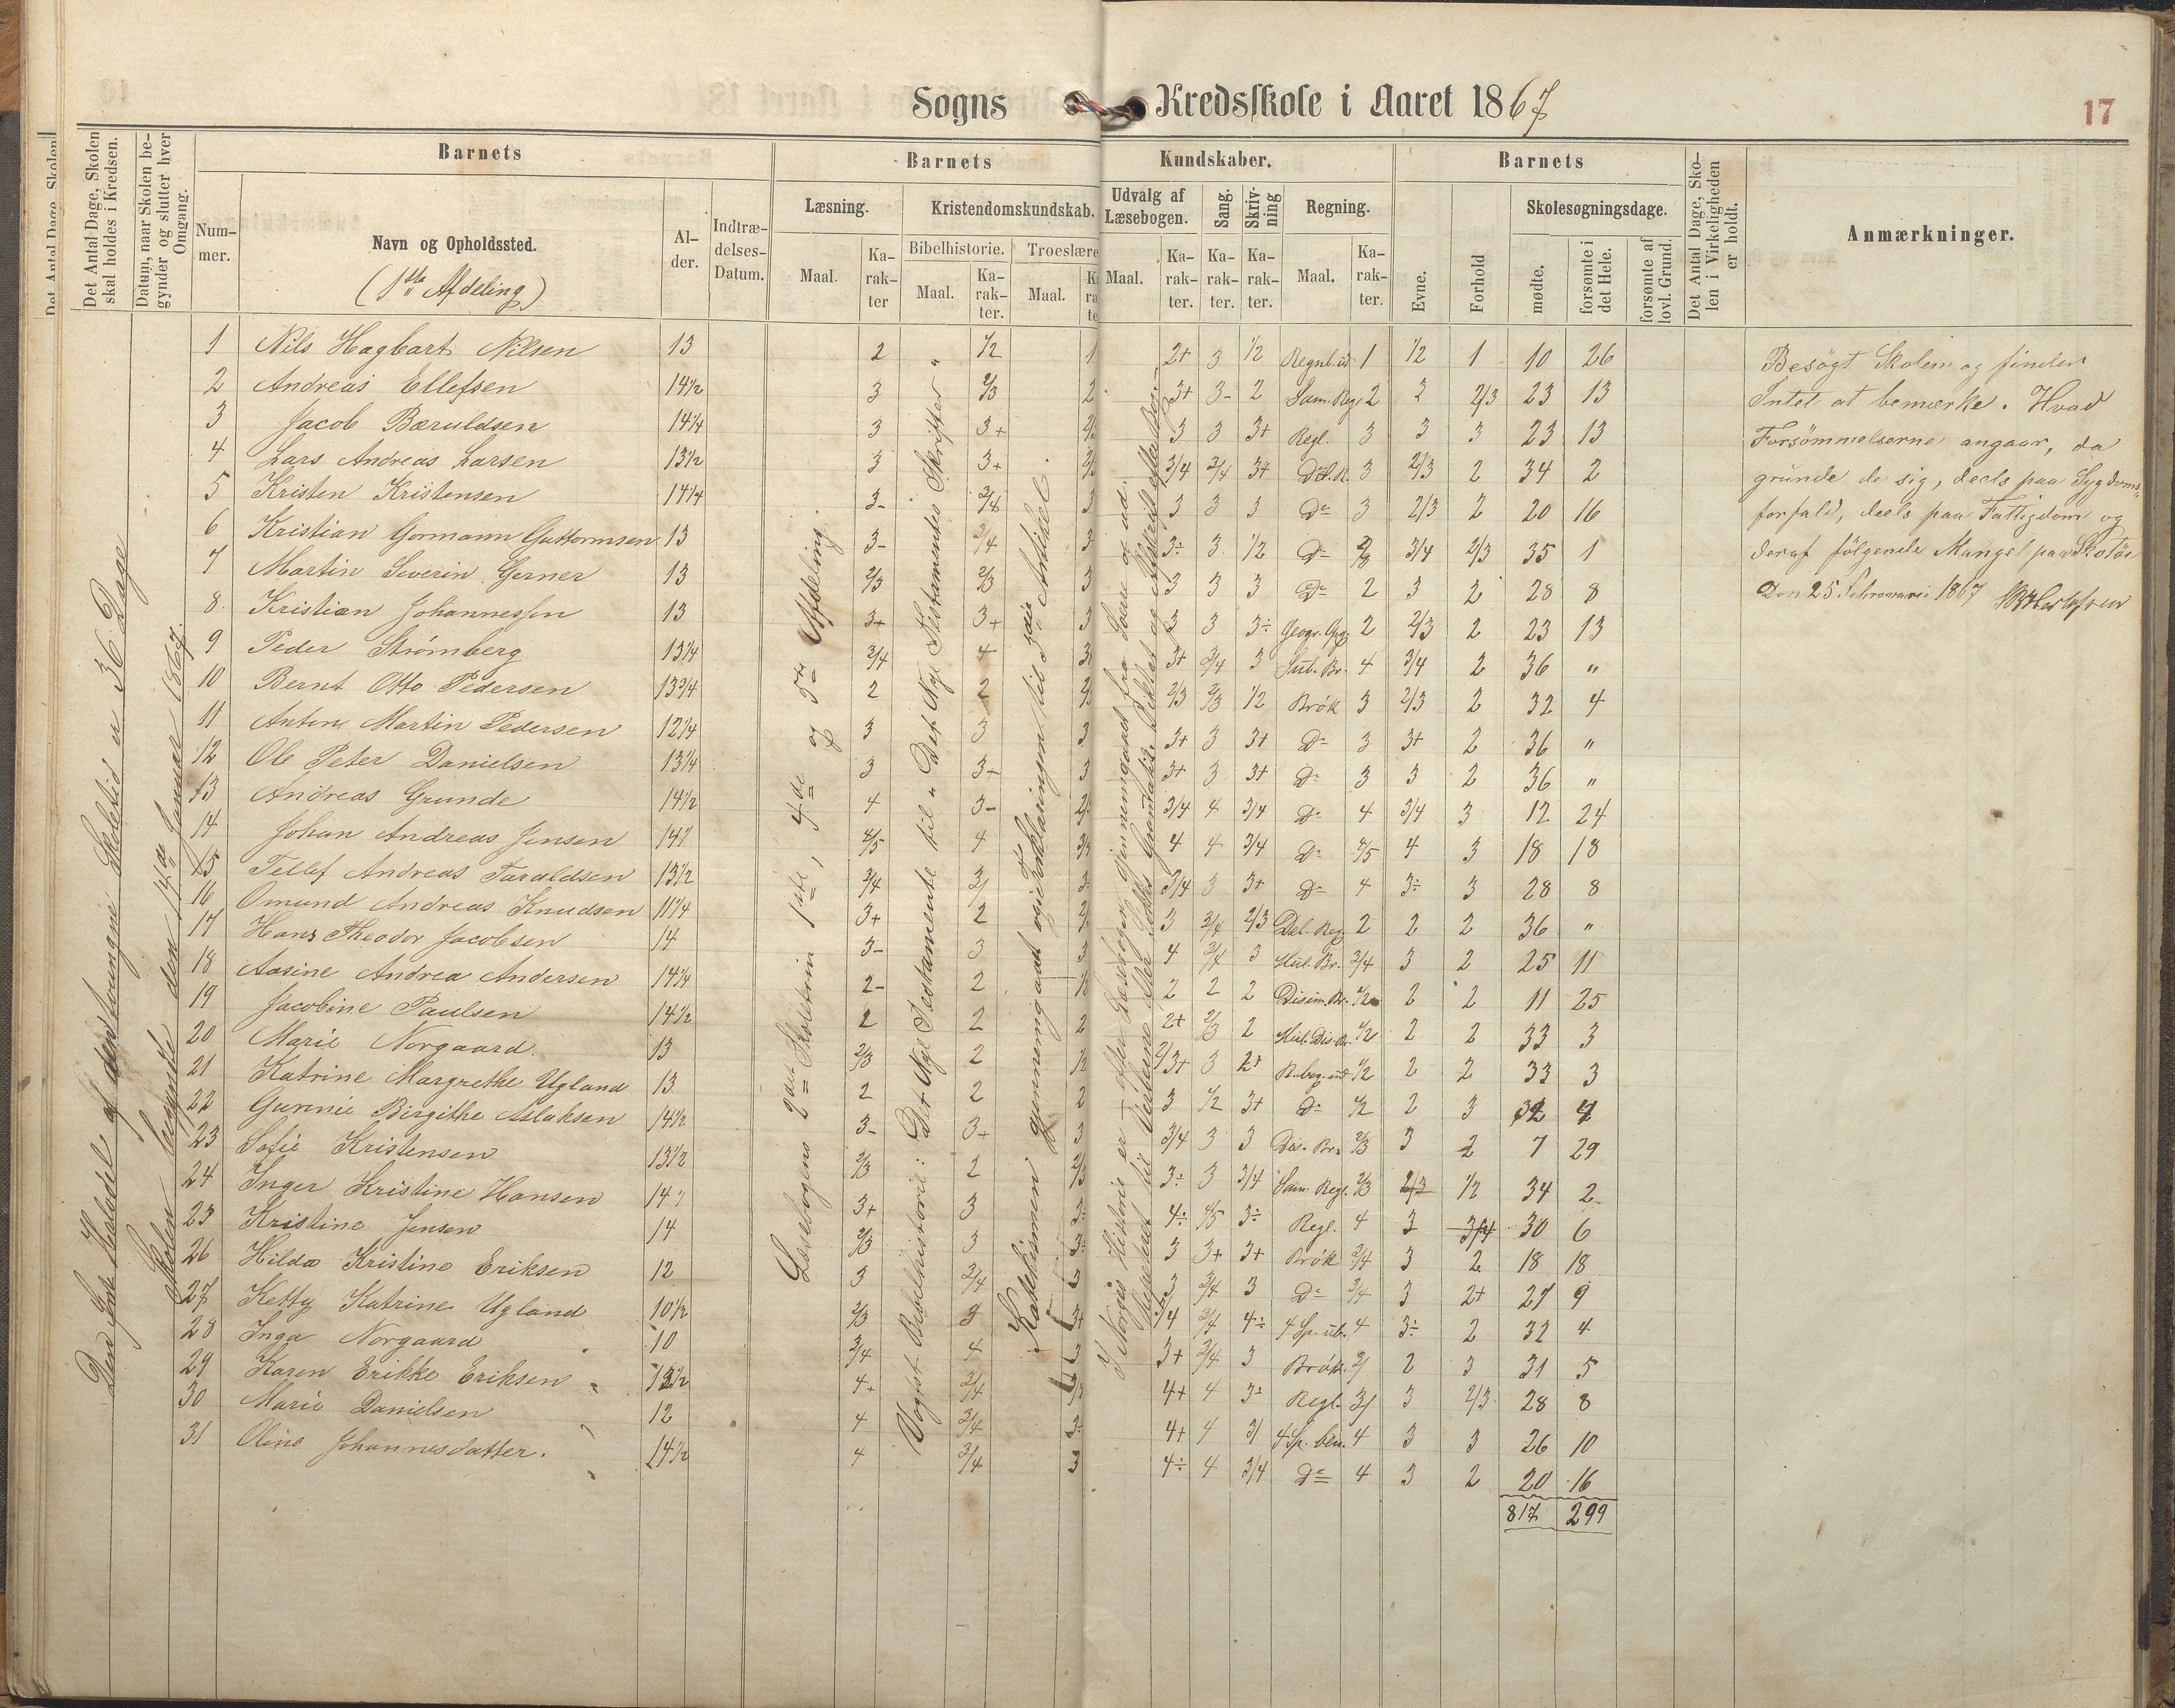 Sogns Kredsskole i Aaret 1867
17
Det Antal Dage, Skolen skal holdes i Kredsen.
Datum, naar Skolen begynder og slutter hver Omgang.
Barnets
Nummer.
Navn og Opholdssted.
(1ste Afdeling)
Alder.
Indtrædelses-Datum.
Barnets Kundskaber.
Læsning.
Kristendomskundskab.
Bibelhistorie.
Troeslære
Udvalg af Læsebogen.
Sang.
Skrivning
Regning.
Maal.
Karakter
Barnets
Evne.
Forhold
Skolesøgningsdage.
mødte.
forsømte i det Hele.
forsømte af lovl. Grund.
Det Antal Dage, Skolen i Virkeligheden er holdt.
Anmærkninger.
1 Nils Hagbart Nilsen 13 2 1/2 1 2+ 3 1/2 1 1/2 1 10 26
2 Andreas Ellefsen 14 1/2 3 2/3 2 3+ 3- 2 Sam. Reg. 2 2 2/3 23 13
3 Jacob Bæruldsen 14 1/4 3 3+ 3 3 3+ Regl. 3 3 3 23 13
4 Lars Andreas Larsen 13 1/2 3 3+ 3/4 3/4 3+ 3 2/3 2 34 2
5 Kristen Kristensen 14 1/4 3- 3/4 3 3 3 3 Do 3 2/3 2 20 16
6 Kristian Gormann Guttormsen 13 3- 3/4 3 3÷ 3 1/2 Do 3/4 2/3 35 1
7 Martin Severin Gerner 13 2/3 2/3 3 3 3 3 Do 2 3 2 28 8
8 Kristian Johannessen 13 3+ 3+ 3 3 3 3÷ 2 2/3 2 23 13
9 Peder Strømberg 13 1/4 3/4 4 3+ 3/4 3 4 3/4 2 36 "
10 Bernt Otto Pedersen 13 3/4 2 2 2/3 2/3 1/2 Brök 3 2/3 2 32 4
11 Anton Martin Pedersen 12 1/4 3 3 3 3+ 3 3+ Do 3 3+ 2 36 "
12 Ole Peter Danielsen 13 1/4 3 3+ 3 3+ 3 3+ Do 3 3 2 36 "
13 Andreas Grunde 14 1/2 4 3- 3/4 4 3/4 Do 4 3/4 3 12 24
14 Johan Andreas Jensen 14 4/5 4 4 4 3/4 Do 4/5 4 3 18 18
15 Tellef Andreas Taraldsen 13 1/2 3/4 3 3/4 3 3+ Do 4 3÷ 3 28 8
16 Omund Andreas Knudsen 11 1/4 3+ 2 3 3/4 2/3 2 2 2 36 "
17 Hans Theodor Jacobsen 14 3- 3 3 4 3/4 3 3/4 3 2 25 11
18 Aasine Andrea Andersen 14 1/4 2- 2 2 2 2 2 2 11 25
19 Jacobine Paulsen 14 1/2 2 2 2 2+ 2/3 2 1/2 2 2 33 3
20 Marie Norgaard 13 2/3 2 2/3+ 3 2+ 1/2 2 2 33 3
21 Katrine Margrethe Ugland 13 2 2 2 3 1/2 3+ Do 1/2 2 3 32 4
22 Gunnie Birgithe Aslaksen 14 1/2 3- 3+ 3 3/4 3 3 2/3 3 2 7 29
23 Sofie Kristensen 13 1/2 2/3 2 2/3 3÷ 3 3/4 Sam. Regl. 2/3 2/3 1/2 34 2
24 Inger Kristine Hansen 14 3+ 3 4÷ 4/5 3÷ Regl. 4 3 3/4 30 6
25 Kristine Jensen 14 2/3 3 3 3+ 3+ Brök 3/4 3 2 18 18
26 Hilda Kristine Eriksen 12 3 3/4 3 3 3/4 3 Do 3/4 3 2+ 27 9
27 Ketty Katrine Ugland 10 1/2 2/3 3 3/4 4÷ 4 3÷ 2 32 4
28 Inga Norgaard 10 3/4 4 3+ 3/4 3 Brök. 3/ 2 3 31 5
29 Karen Erikke Eriksen 13 1/2 4+ 3/4 4+ 4 3÷ Regl. 3/ 3 2/3 28 8
30 Marie Danielsen 12 4 3/4 3÷ 4+ 4 3/ 4 3 3 26 10
31 Oline Johannesdatter. 14 1/2 4 3/4 3 4÷ 4 3/4 Do 4 3 2 20 16
817 299
Skolen begyndte den 14de Januar 1867.
Læsebogens 2det Skoletrin 1ste, 4de og 5te Afdeling.
Vogts Bibelhistorie: Det Nye Testamente til "Det Nye Testamentes Skrifter"
Katekismen gjennemgaaet og Forklaringen til 3die Artikel.
Besögt Skolen og finder
Intet at bemærke. Hvad
Forsömmelserne angaar, da
grunde de sig, deels paa Sygdoms-
forfald, deels paa Fattigdom og
deraf fölgende Mangel paa Skotöi
Den 25 Februari 1867